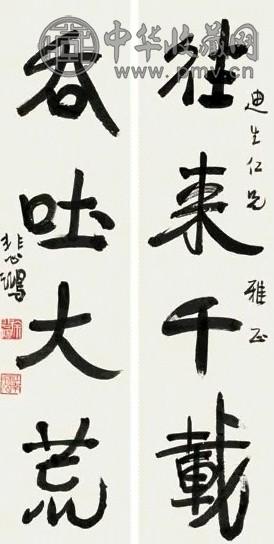 中华收藏网
www.pmv.cn
迪生仁兄 雅正
往来千载
吞吐大荒
悲鸿